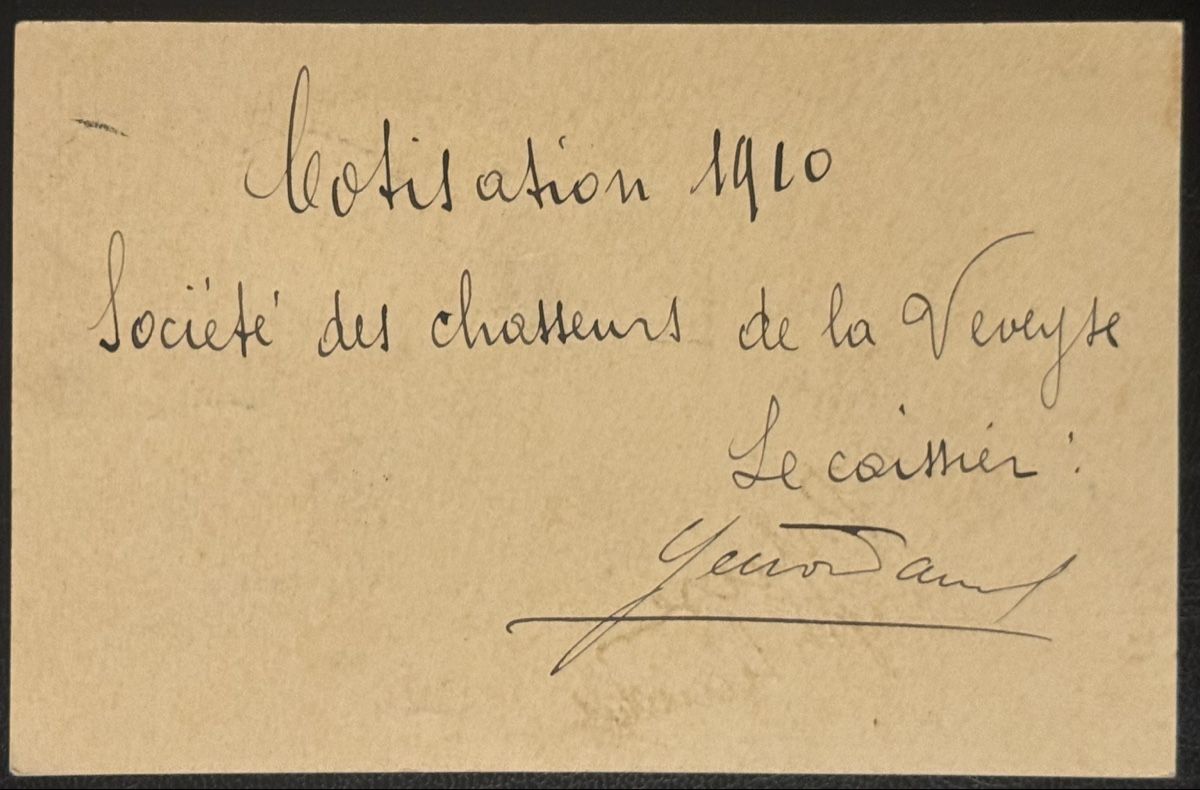 Cotisation 1910
Société des chasseurs de la Veveyse
Le caissier :